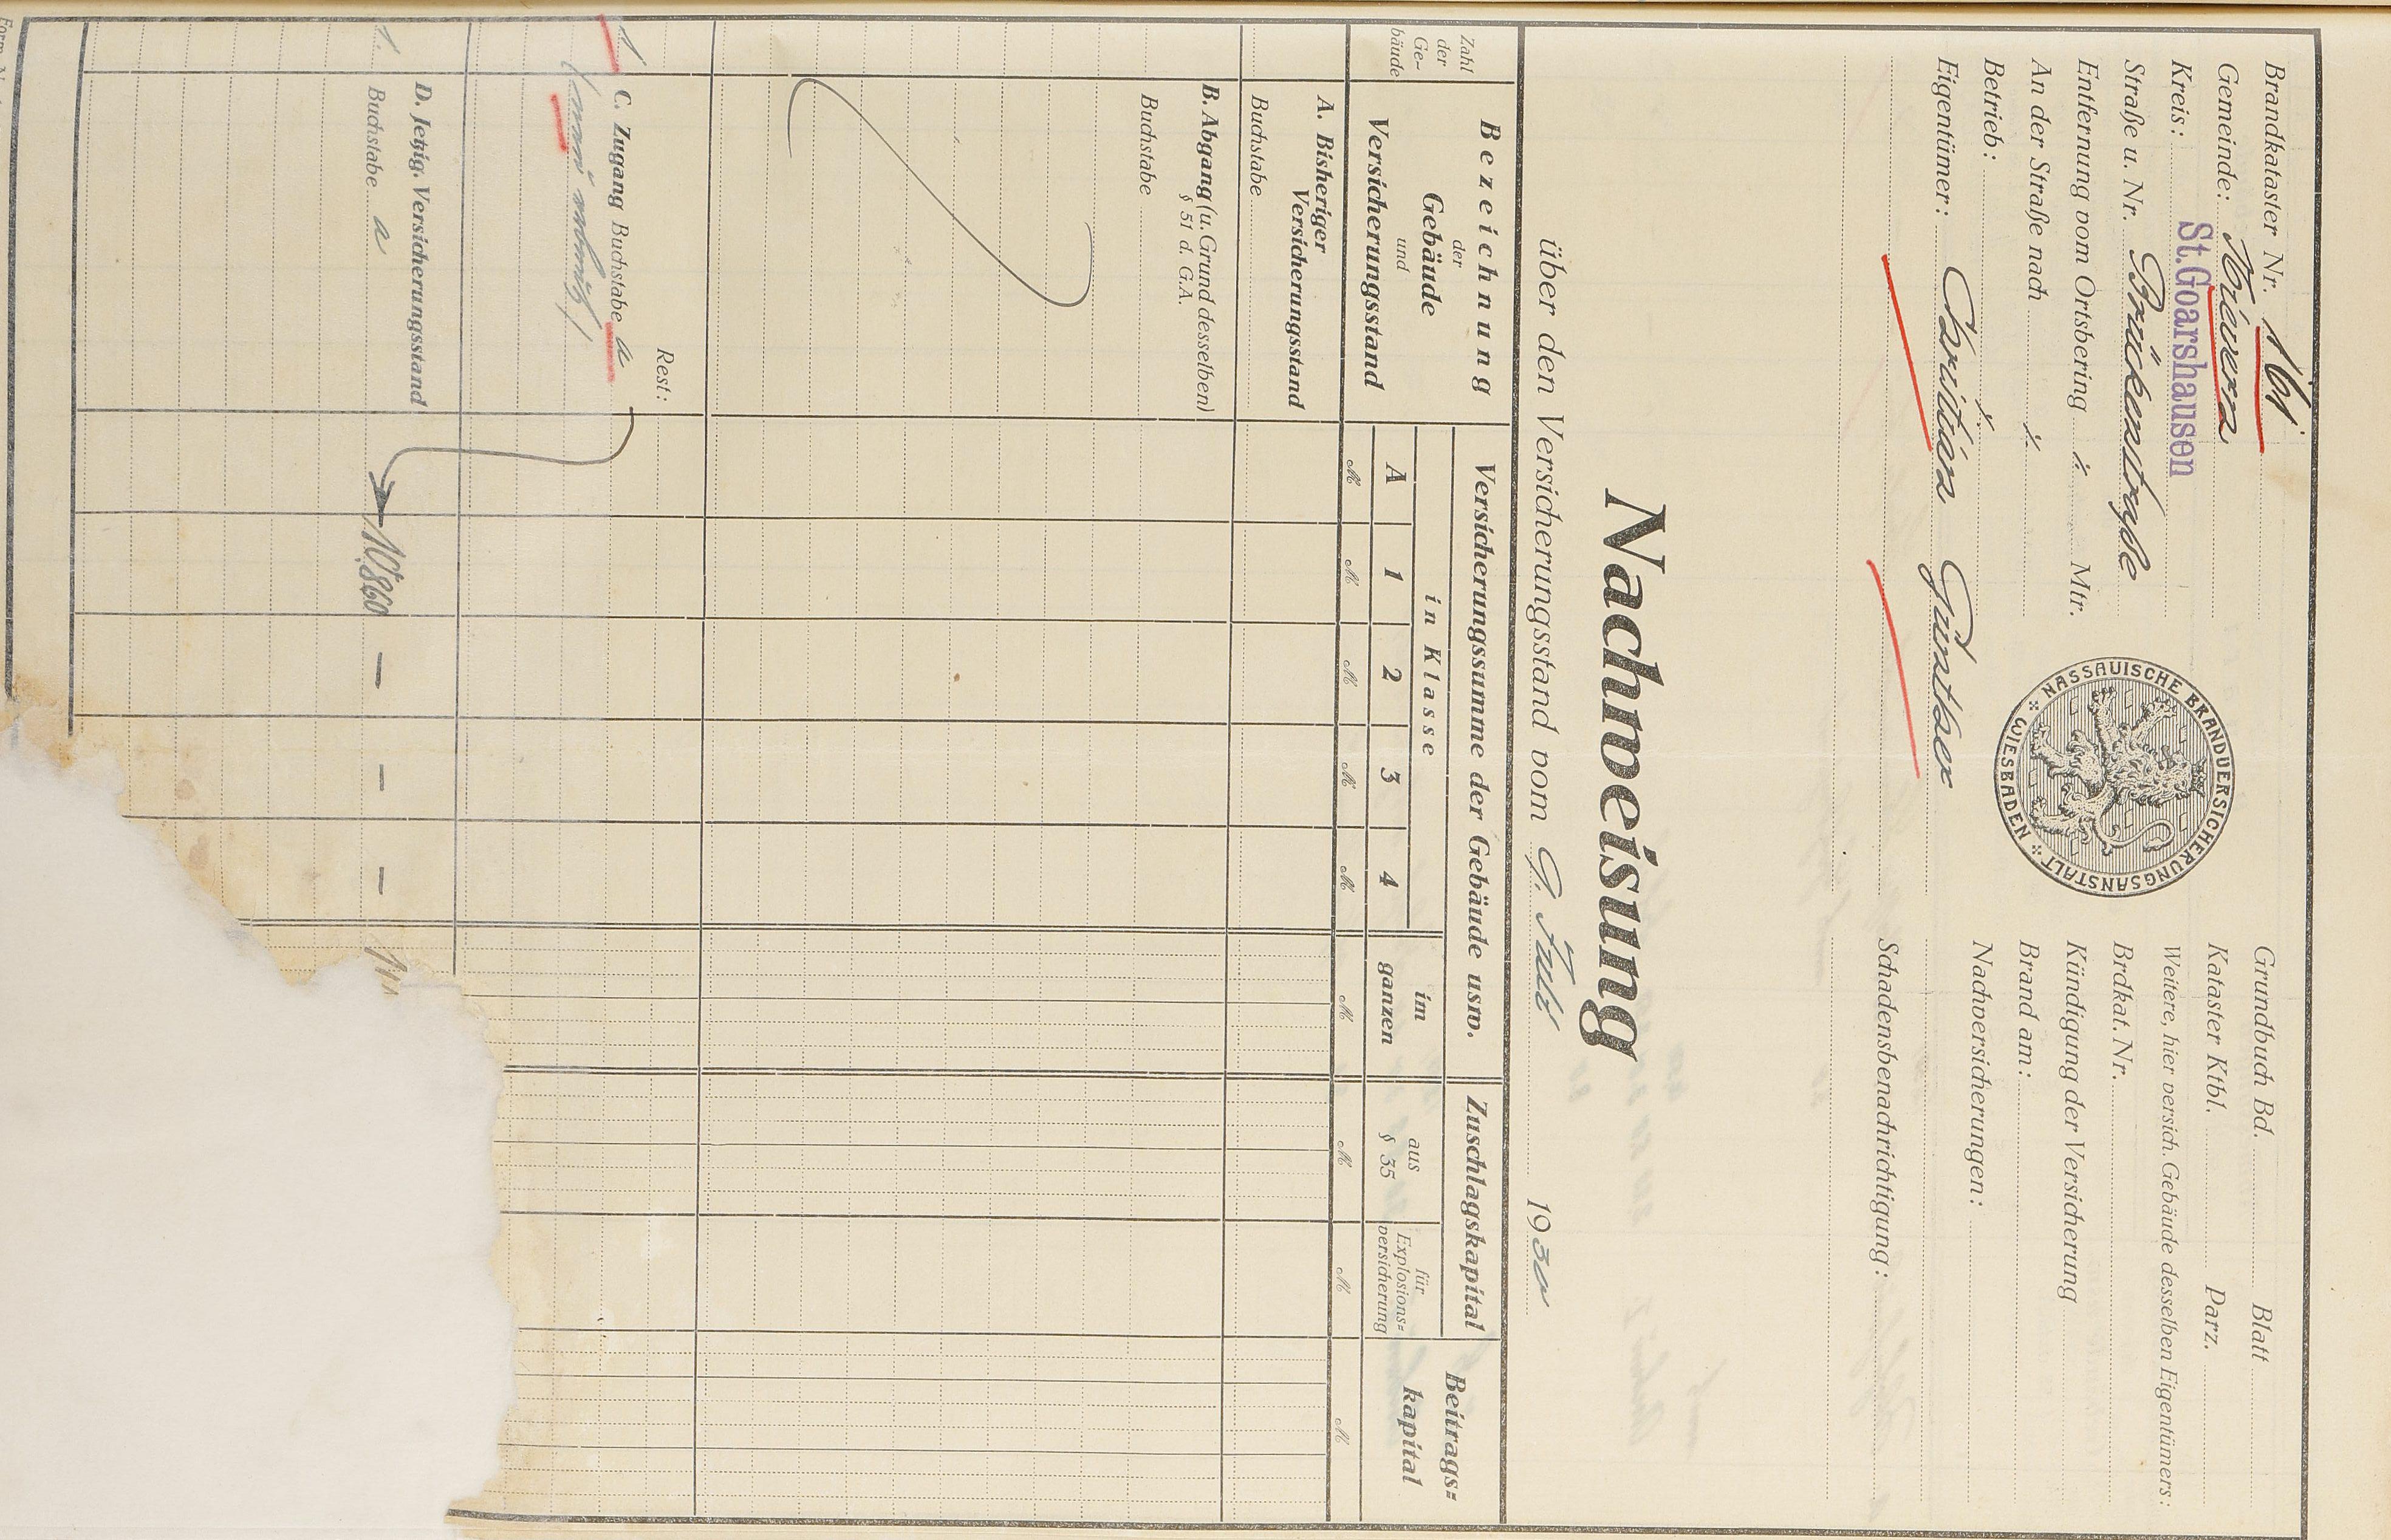 Brandkataster Nr. 161
Gemeinde: Nievern
Kreis: St. Goarshausen
Straße u. Nr. Brückenstraße
Entfernung vom Ortsbering ./. Mtr.
An der Straße nach ./.
Betrieb: ./.
Eigentümer: Christian Günther
NASSAUISCHE BRANDVERSICHERUNGSANSTALT
WIESBADEN
Grundbuch Bd. Blatt
Kataster Ktbl. Parz.
Weitere, hier versich. Gebäude desselben Eigentümers:
Brdkat. Nr.
Kündigung der Versicherung
Brand am:
Nachversicherungen:
Schadensbenachrichtigung:
Nachweisung
über den Versicherungsstand vom 9. Juli 1930
Zahl
der
Ge-
bäude
Bezeichnung
der
Gebäude
und
Versicherungsstand
Versicherungssumme der Gebäude usw.
in Klasse
A 1 2 3 4
im
ganzen
Zuschlagskapital
aus
§ 35
für
Explosions-
versicherung
Beitrags-
kapital
M M M M M M M M M
A. Bisheriger
Versicherungsstand
Buchstabe
B. Abgang (u. Grund desselben)
§ 51 d. G.A.
Buchstabe
Rest:
1 C. Zugang Buchstabe a
D. Jetzig. Versicherungsstand
1. Buchstabe a 10.860 — — —